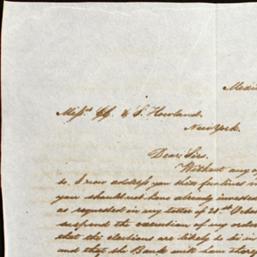 Mexi
Messrs. G. & S. Howland.
New York.
Dear Sirs.
Without any o
to. I now address you this few lines in
you should not have already invested
as requested in my letter of 28th Octo
suspend the execution of my order
that the elections are likely to be in
and that the Bank will have